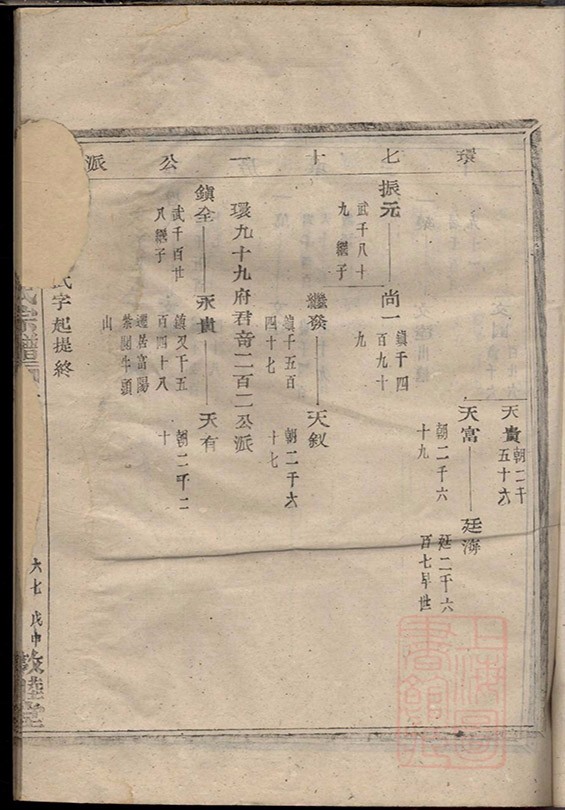 環七十一公派
天貴
朝二千
五十六
天富
朝二千六
十九
廷海
廷二千六
百七早世
振元
武千八十
九 繼子
尚一
鎮千四
百九十
九
繼癸
鎮千五百
四十七
天釵
朝二千六
十七
環九十九府君音二百二公派
鎮全
武千百廿
八繼子
永貴
鎮又千五
百四十八
遷居富陽
紫閬牛頭
山
天有
朝二千二
十
氏字起提終
氏宗譜
六七
戊申
敦睦堂
上海圖書館藏